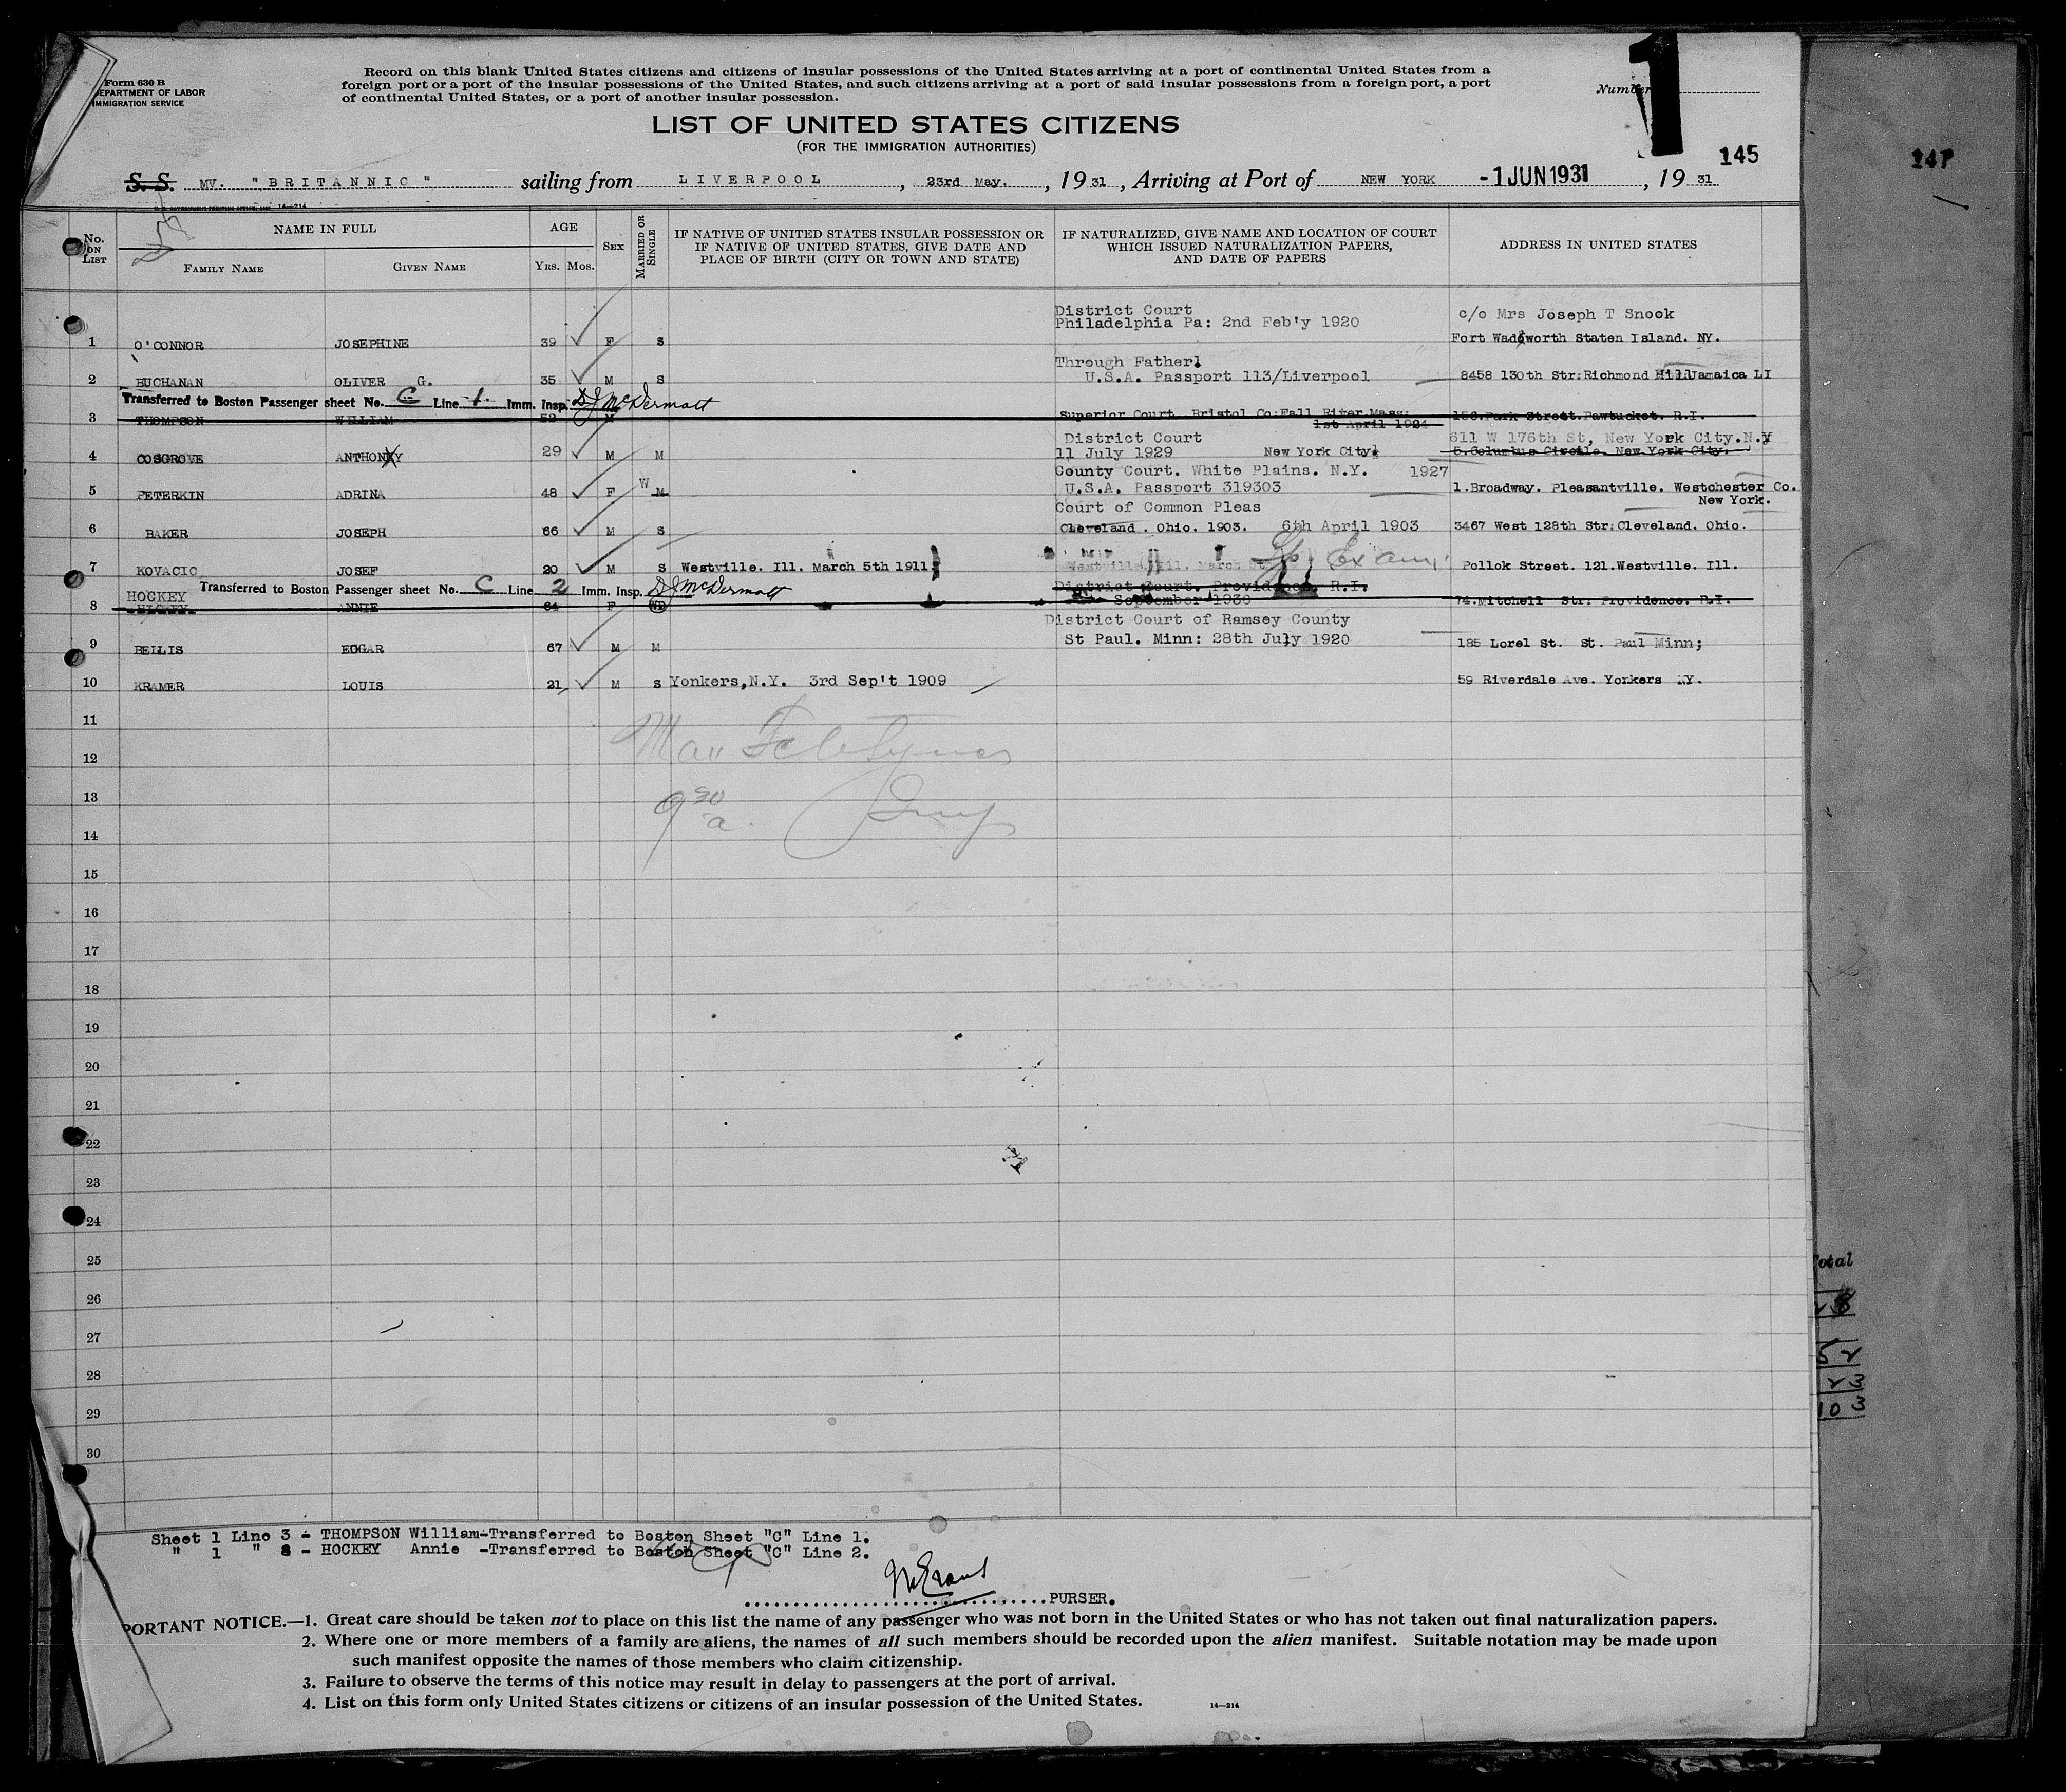 Form 630 B
EPARTMENT OF LABOR
IMMIGRATION SERVICE
Record on this blank United States citizens and citizens of insular possessions of the United States arriving at a port of continental United States from a
foreign port or a port of the insular possessions of the United States, and such citizens arriving at a port of said insular possessions from a foreign port, a port
of continental United States, or a port of another insular possession.
Number
1
LIST OF UNITED STATES CITIZENS
(FOR THE IMMIGRATION AUTHORITIES)
145
147
S. S. MV. "BRITANNIC" sailing from LIVERPOOL, 23rd May., 1931, Arriving at Port of NEW YORK -1 JUN 1931, 1931
14—214
No. ON LIST
NAME IN FULL
FAMILY NAME
GIVEN NAME
AGE
YRS. MOS.
SEX
MARRIED OR SINGLE
IF NATIVE OF UNITED STATES INSULAR POSSESSION OR
IF NATIVE OF UNITED STATES, GIVE DATE AND
PLACE OF BIRTH (CITY OR TOWN AND STATE)
IF NATURALIZED, GIVE NAME AND LOCATION OF COURT
WHICH ISSUED NATURALIZATION PAPERS,
AND DATE OF PAPERS
ADDRESS IN UNITED STATES
District Court
Philadelphia Pa: 2nd Feb'y 1920
c/o Mrs Joseph T Snook
1 O'CONNOR JOSEPHINE 39 F S Fort Wadsworth Staten Island. NY.
Through Father.
2 BUCHANAN OLIVER G. 35 M S U.S.A. Passport 113/Liverpool 8458 130th Str:Richmond Hill Jamaica LI
Transferred to Boston Passenger sheet No. C Line 1. Imm. Insp. D J McDermott
3 THOMPSON WILLIAM 52 M Superior Court Bristol Co:Fall River Mass: 156.Park Street.Pawtucket. R.I.
1st April 1924
District Court 611 W 176th St, New York City.N.Y
4 COSGROVE ANTHONY 29 M M 11 July 1929 New York City. 5.Columbus Circle. New York City.
County Court. White Plains. N.Y. 1927
5 PETERKIN ADRINA 48 F W M U.S.A. Passport 319303 1.Broadway. Pleasantville. Westchester Co.
New York.
Court of Common Pleas
6 BAKER JOSEPH 66 M S Cleveland. Ohio. 1903. 6th April 1903 3467 West 128th Str:Cleveland. Ohio.
7 KOVACIC JOSEF 20 M S Westville. Ill. March 5th 1911 Westville. Ill. March Pollok Street. 121.Westville. Ill.
Transferred to Boston Passenger sheet No. C Line 2 Imm. Insp. D J McDermott
District Court. Providence. R.I.
HOCKEY
8 HICKEY ANNIE 64 F WD September 1930 74.Mitchell Str: Providence. R.I.
District Court of Ramsey County
9 BELLIS EDGAR 67 M M St Paul. Minn: 28th July 1920 185 Lorel St. St. Paul Minn;
10 KRAMER LOUIS 21 M S Yonkers,N.Y. 3rd Sep't 1909 59 Riverdale Ave. Yonkers NY.
11
12
13
9 30 a.
14
15
16
17
18
19
20
21
22
23
24
25
26
27
28
29
30
otal
5 2
2 3
10 3
Sheet 1 Line 3 - THOMPSON William-Transferred to Boston Sheet "C" Line 1.
" 1 " 8 - HOCKEY Annie -Transferred to Boston Sheet "C" Line 2.
Evans
PURSER.
PORTANT NOTICE.—1. Great care should be taken not to place on this list the name of any passenger who was not born in the United States or who has not taken out final naturalization papers.
2. Where one or more members of a family are aliens, the names of all such members should be recorded upon the alien manifest. Suitable notation may be made upon
such manifest opposite the names of those members who claim citizenship.
3. Failure to observe the terms of this notice may result in delay to passengers at the port of arrival.
4. List on this form only United States citizens or citizens of an insular possession of the United States.
14—214